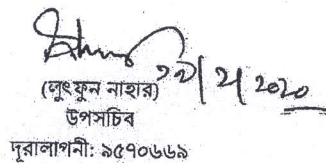 ২৯/২/২০২০
(লুৎফুন নাহার)
উপসচিব
দূরালাপনী: ৯৫৭০৬৬৯